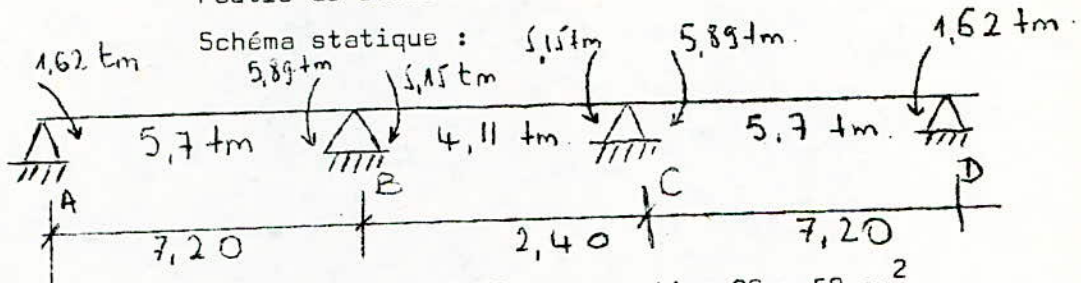 Schéma statique :
1,62 tm 5,89 tm 5,15 tm 5,15 tm 5,89 tm. 1,62 tm.
5,7 tm 4,11 tm. 5,7 tm.
A B C D
7,20 2,40 7,20
2